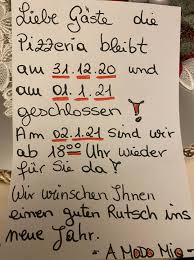 Liebe Gäste die
Pizzeria bleibt
am 31.12.20 und
am 01.1.21
geschlossen!
Am 02.1.21 sind wir
ab 18⁰⁰ Uhr wieder
für Sie da!
Wir wünschen Ihnen
einen guten Rutsch ins
neue Jahr.
A MODO MIO